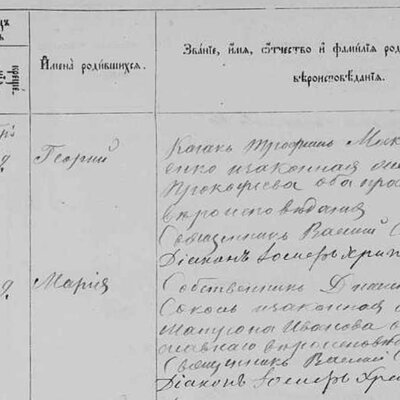 Имена родившихся.
Званіе, имя, отчество и фамилія род
вѣроисповѣданія.
креще.
Георгій
Казакъ Трофимъ
енко и законная
Прокофіева оба пра
вероисповѣданія
Священникъ Василій С
Діаконъ Іосифъ Хри
Марія
Собственникъ
Соколъ и законная
Иванова
славнаго вероисповѣ
Священникъ Василій С
Діаконъ Іосифъ Хри